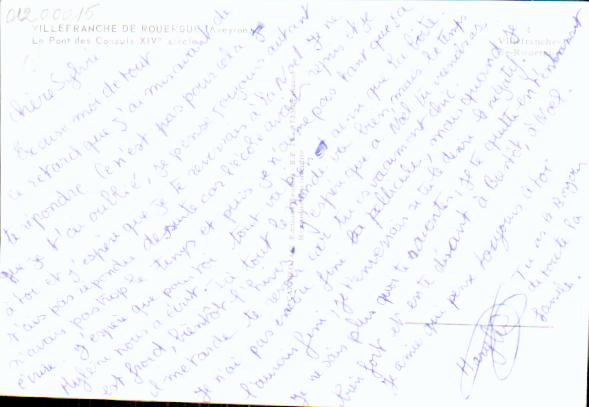 01200015
VILLEFRANCHE DE ROUERGUE (Aveyron)
Le Pont des Consuls XIVe siècle
Villefranche-
de-Rouergue
chère Sylvie
Excuse moi de tout
le retard que j'ai mis avant de
te répondre. Ce n'est pas pour cela
que je t'ai oublié, je pense toujours autant
à toi et j'espère que je te reverrais à la
t'ais pas répondu de suite car l'école
n'avais pas trop le temps et puis je n'aime pas tant que ça
écrire. J'espère que pour toi tout va bien
nous a écrit. Ici tout le monde va bien, mais le temps
est froid, bientôt l'hiver. J'espère que à Noël tu viendras
il me tarde de te revoir car tu
Je n'ai pas encore fini la pellicule, mais quand je
l'aurais fini, je t'enverrais
Je ne sais plus quoi te raconter, je te quitte en t'embrassant
bien fort et en te disant à Bientôt, à Noël.
Ton amie qui pense toujours à toi
Tu as le Bonjour
de toute la
famille.